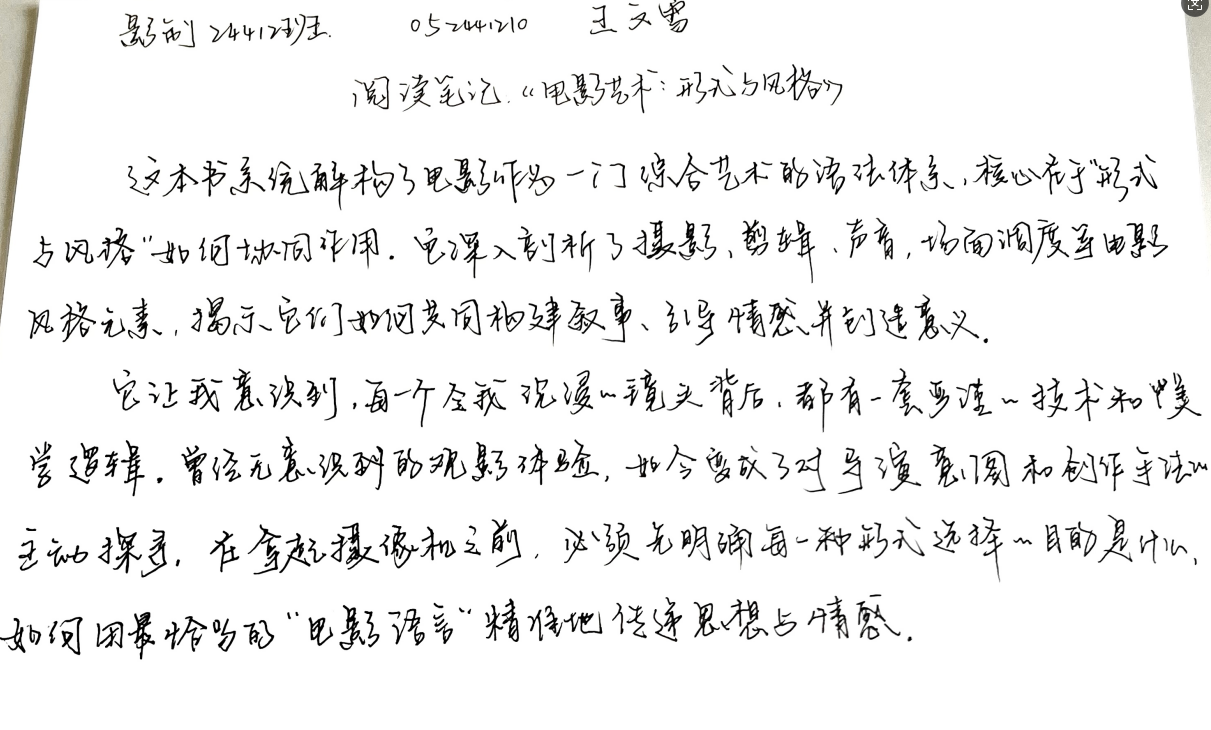 影制24412班 052441210 王文雪
阅读笔记《电影艺术:形式与风格》
这本书系统解构了电影作为一门综合艺术的语法体系,核心在于"形式
与风格"如何协同作用.它深入剖析了摄影、剪辑、声音,场面调度等电影
风格元素,揭示它们如何共同构建叙事、引导情感并创造意义.
它让我意识到,每一个令我沉浸的镜头背后,都有一套严谨的技术和美
学逻辑.曾经无意识到的观影体验,如今变成了对导演意图和创作手法的
主动探寻.在拿起摄像机之前,必须先明确每一种形式选择的目的是什么,
如何用最恰当的"电影语言"精准地传递思想与情感.